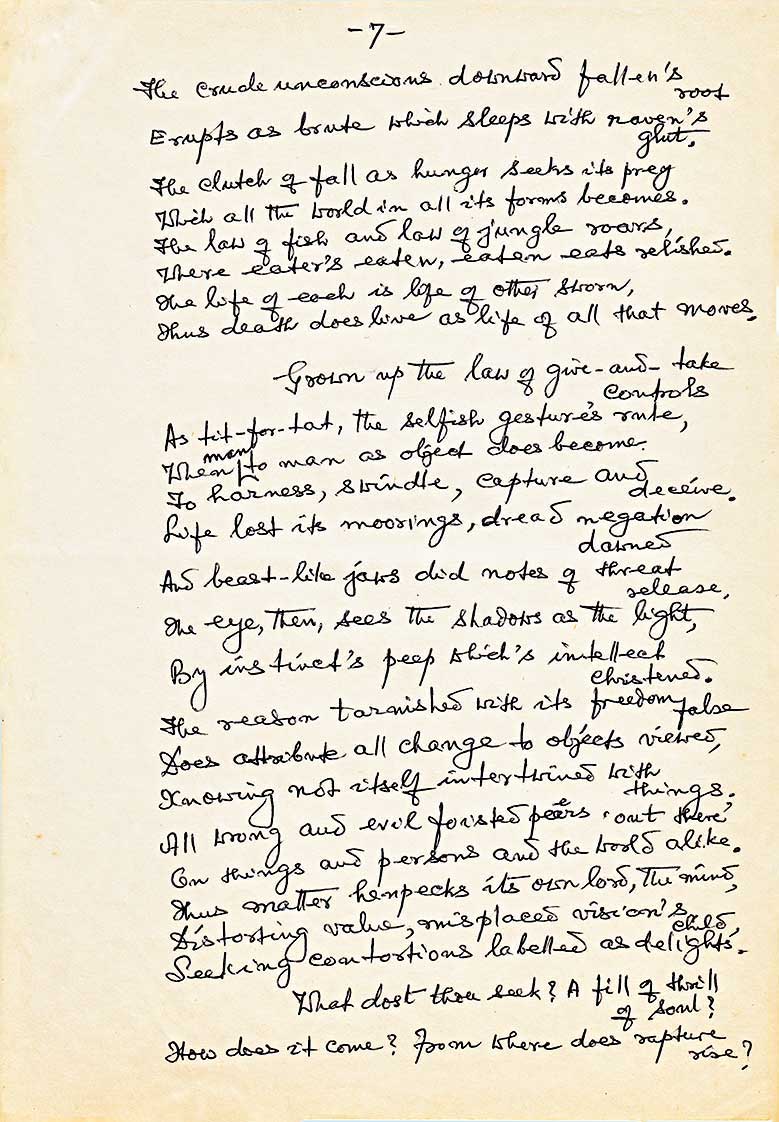 -7-
The crude unconscious downward fallen's
root
Erupts as brute which sleeps with raven's
glut.
The clutch of fall as hunger seeks its prey
Which all the world in all its forms becomes.
The law of fish and law of jungle roars,
Where eater's eaten, eaten eats relished.
The life of each is life of other shorn,
Thus death does live as life of all that moves.
Grown up the law of give-and-take
controls
As tit-for-tat, the selfish gesture's rule,
man
When to man as object does become
To harness, swindle, capture and
deceive.
Life lost its moorings, dread negation
dawned
And beast-like jaws did notes of threat
release,
The eye, then, sees the shadows as the light,
By instinct's peep which's intellect
christened.
The reason tarnished with its freedom false
Does attribute all change to objects viewed,
Knowing not itself intertwined with
things.
All wrong and evil foisted peers 'out there'
On things and persons and the world alike.
Thus matter henpecks its own lord, the mind,
Distorting value, misplaced vision's
child
Seeking contortions labelled as delights.
What dost thou seek? A fill of thrill
of soul?
How does it come? From where does rapture
rise?